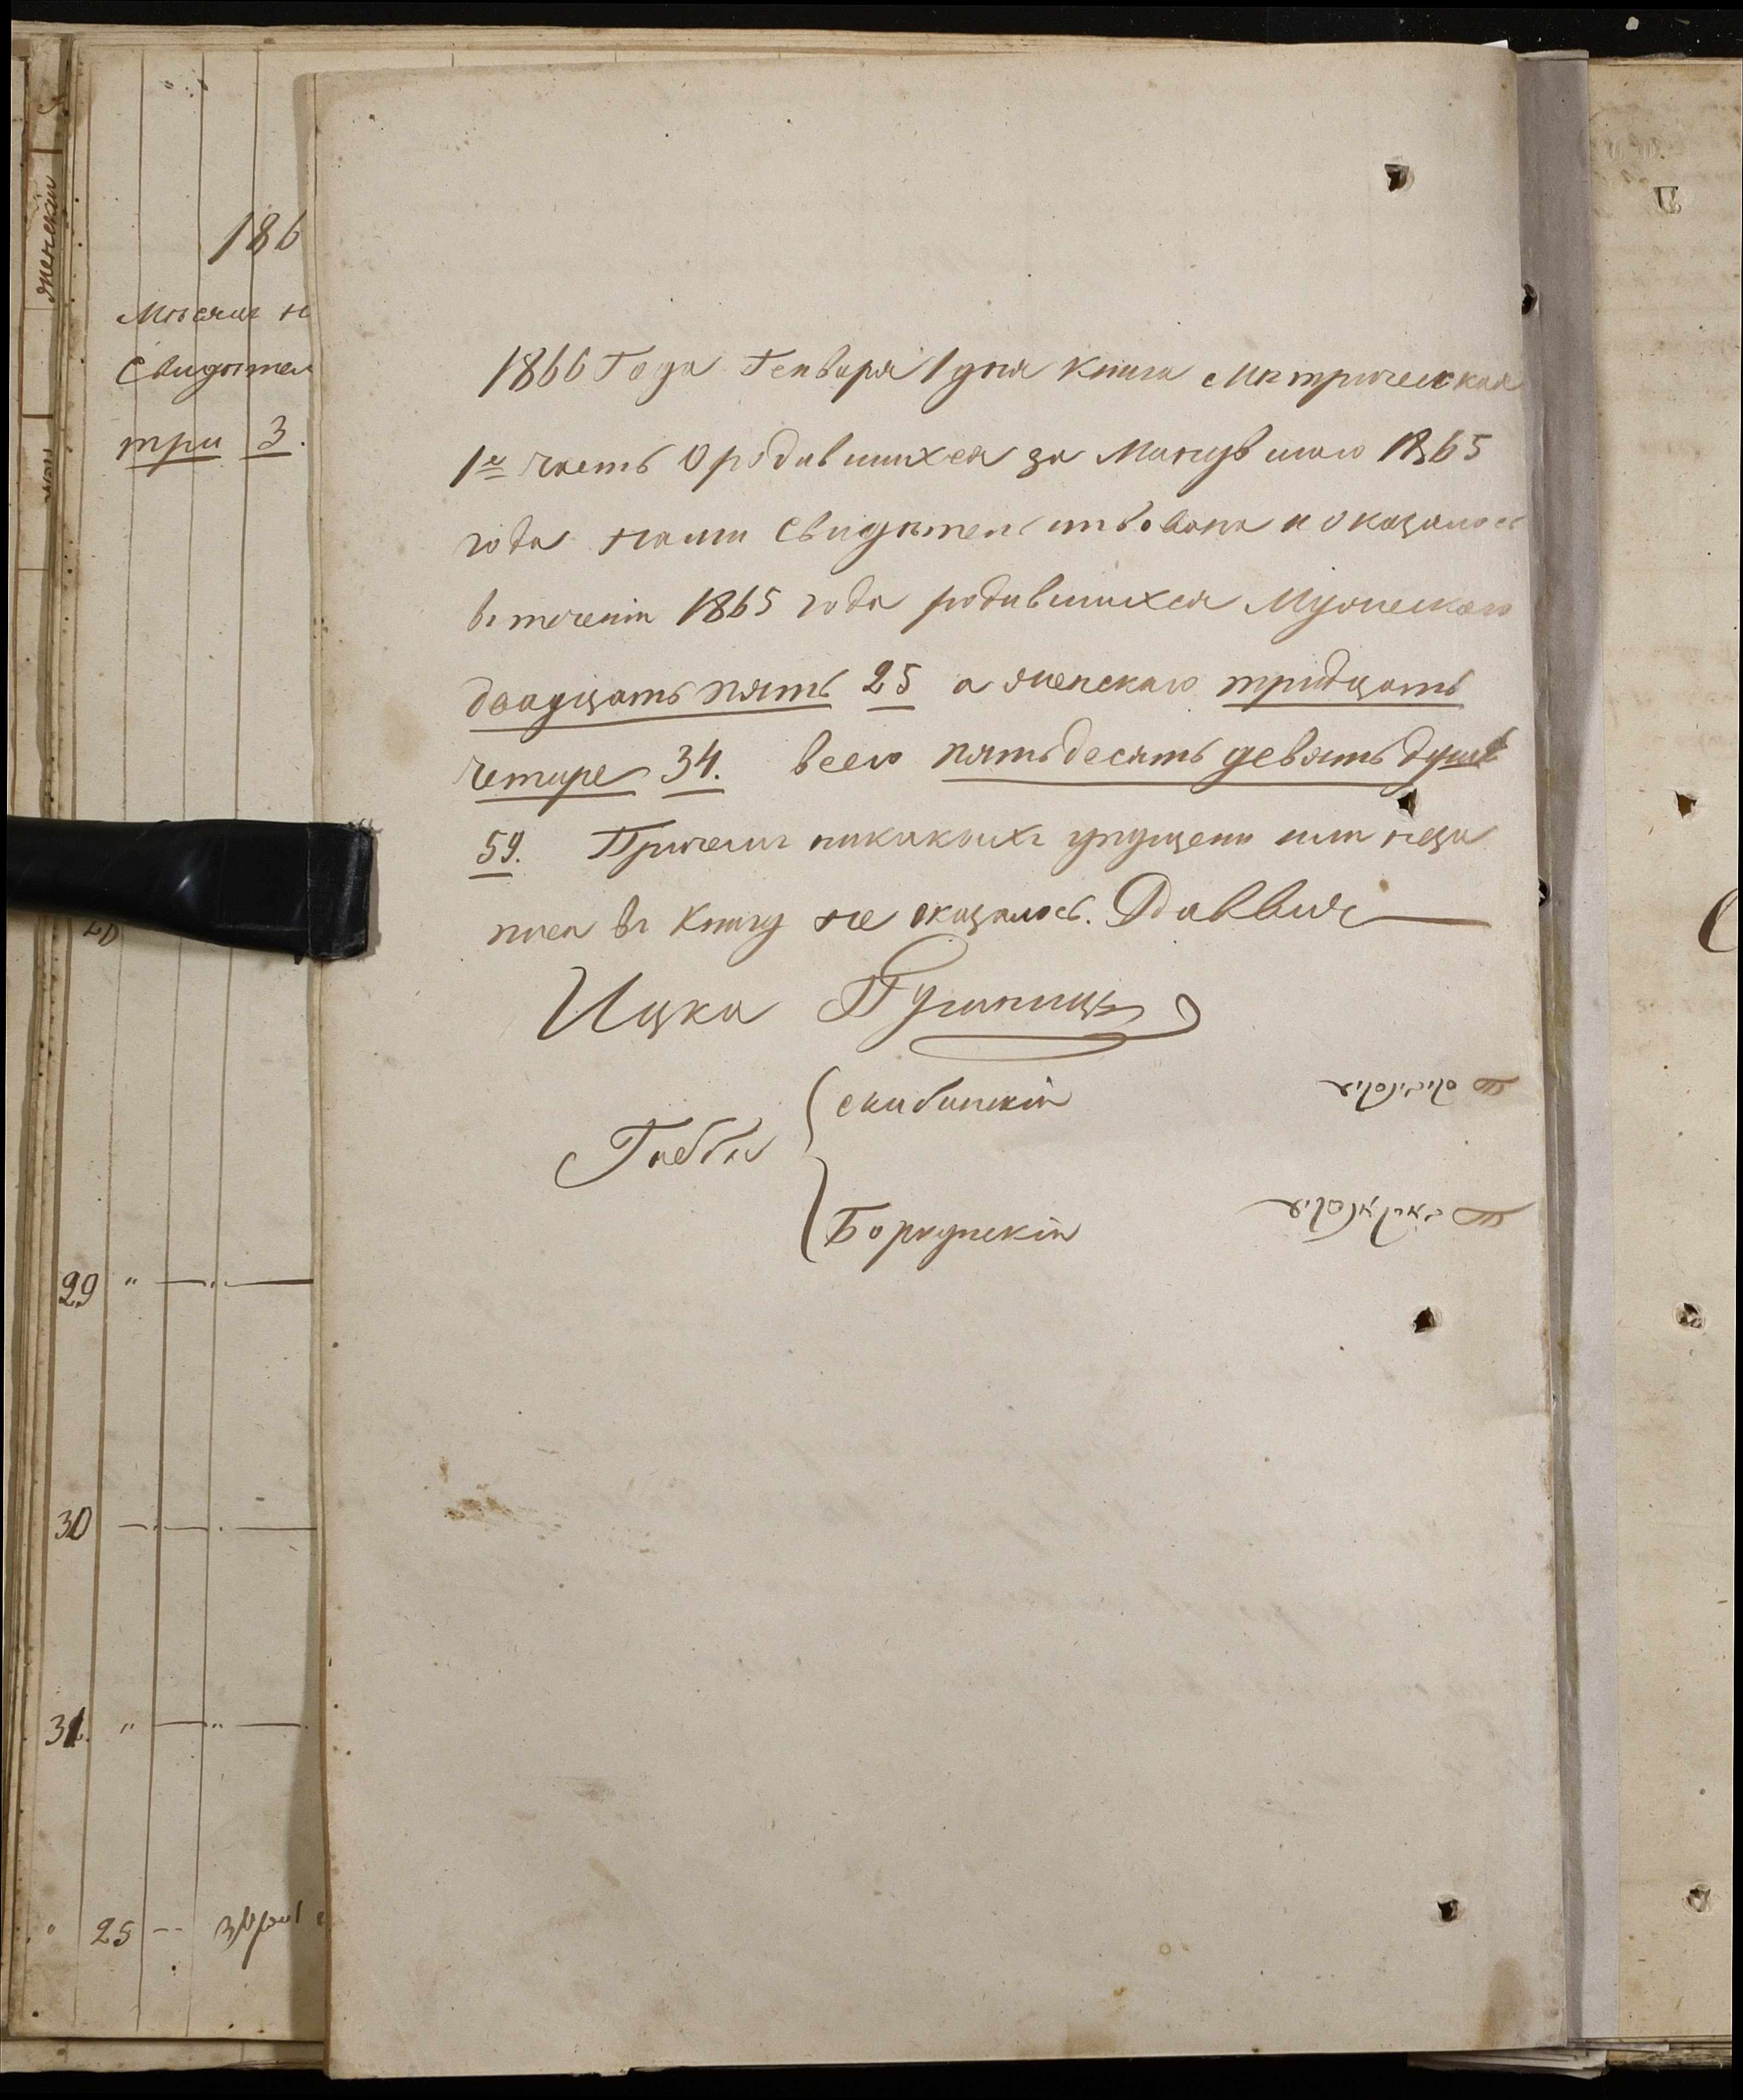 186
Мѣсяцъ н
Свидѣтел
три 3.
29
30
31.
25
1866 Года Генваря 1 дня Книга Метрическая
1я часть О родившихся за Минувшаго 1865
года нами Свидѣтельствована и оказалось
въ теченіи 1865 года родившихся Мужескаго
двадцать пять 25 а женскаго тридцать
четире 34. всего пятьдесять девять душъ
59. Причемъ никакихъ упущени или неза
писи въ Книгу не оказалось. Раввинъ
Ицка
Габби
Скибинскій
Борадускій